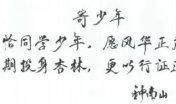 寄少年
恰同学少年，愿风华正
期投身杏林，更以行证
钟南山